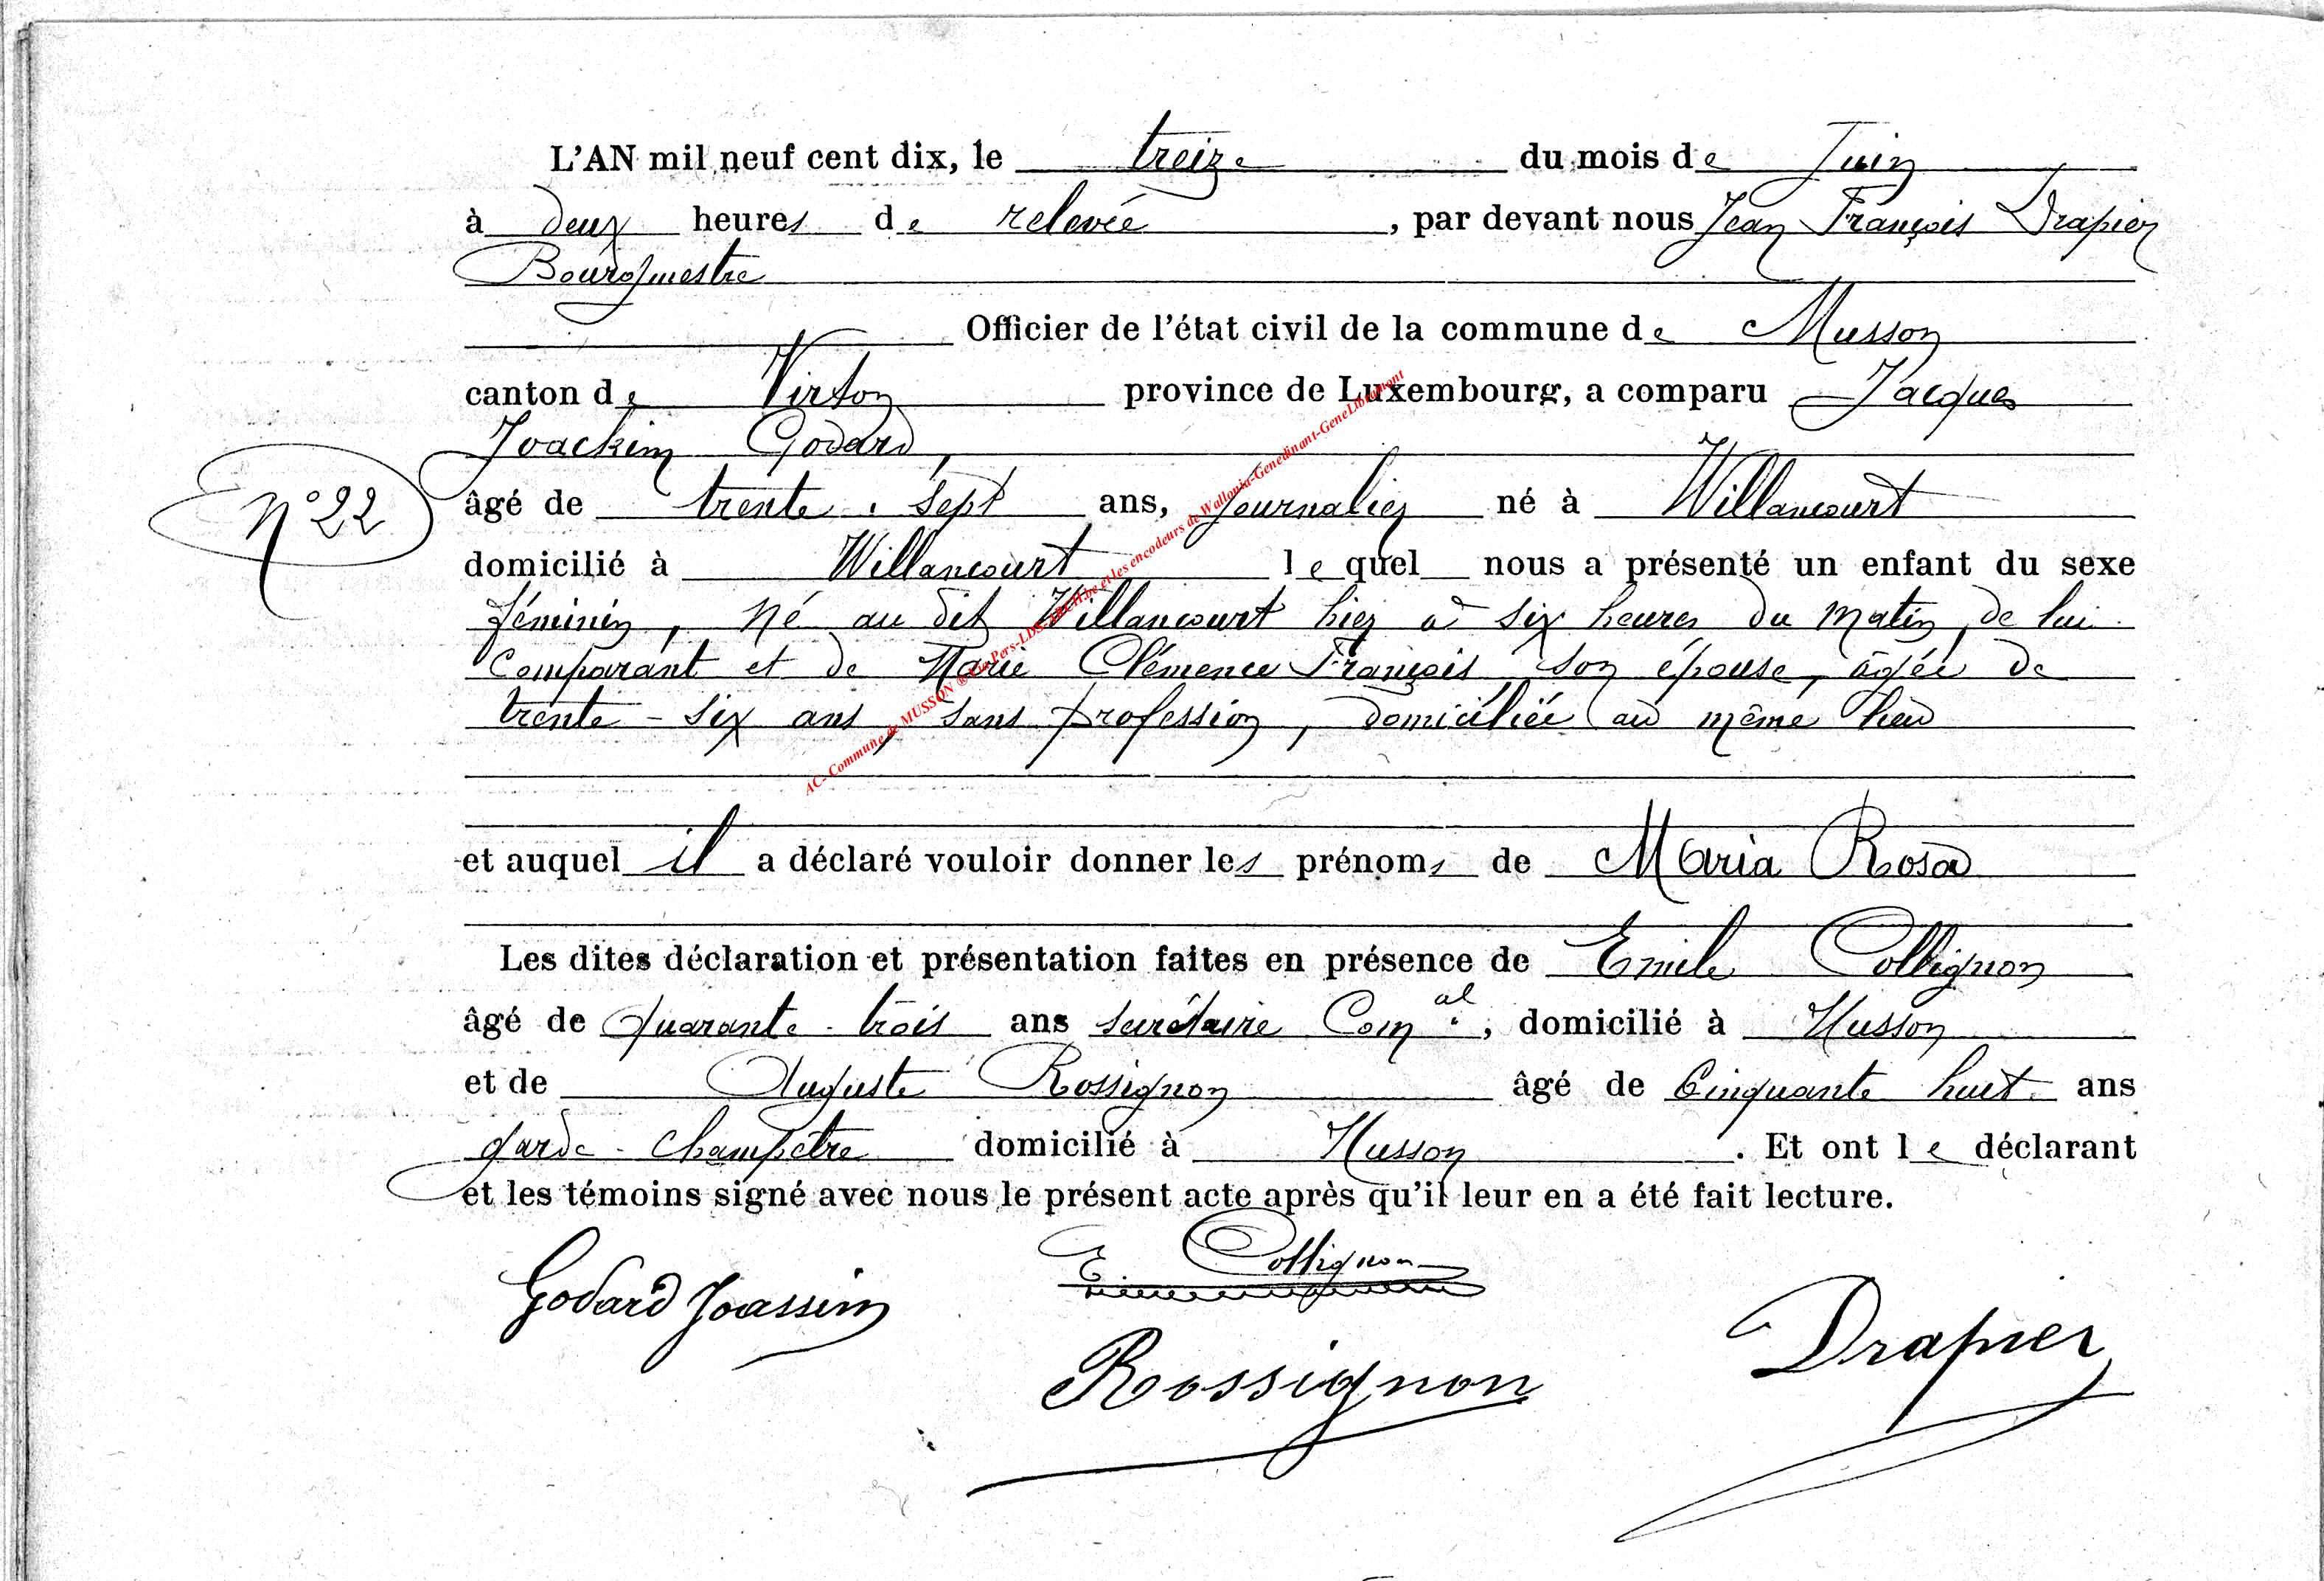 L'AN mil neuf cent dix, le treize du mois de Juin
à deux heures de relevée, par devant nous Jean François Drapier
Bourgmestre
Officier de l'état civil de la commune de Musson
canton de Virton province de Luxembourg, a comparu Jacques
Joachim Godard,
N° 22
âgé de trente-sept ans, journalier né à Willancourt
domicilié à Willancourt lequel nous a présenté un enfant du sexe
féminin, né au dit Willancourt hier à six heures du matin, de lui
comparant et de Marie Clémence François, son épouse, âgée de
trente-six ans, sans profession, domiciliée au même lieu
et auquel il a déclaré vouloir donner les prénoms de Maria Rosa
Les dites déclaration et présentation faites en présence de Emile Collignon
âgé de quarante-trois ans secrétaire Com.al, domicilié à Musson
et de Auguste Rossignon âgé de cinquante huit ans
garde-champêtre domicilié à Musson. Et ont le déclarant
et les témoins signé avec nous le présent acte après qu'il leur en a été fait lecture.
Godard Joassim
E. Collignon
Rossignon
Drapier
AC- Commune de MUSSON ® encodeurs de Wallonia-Genedinant-GeneLibramont